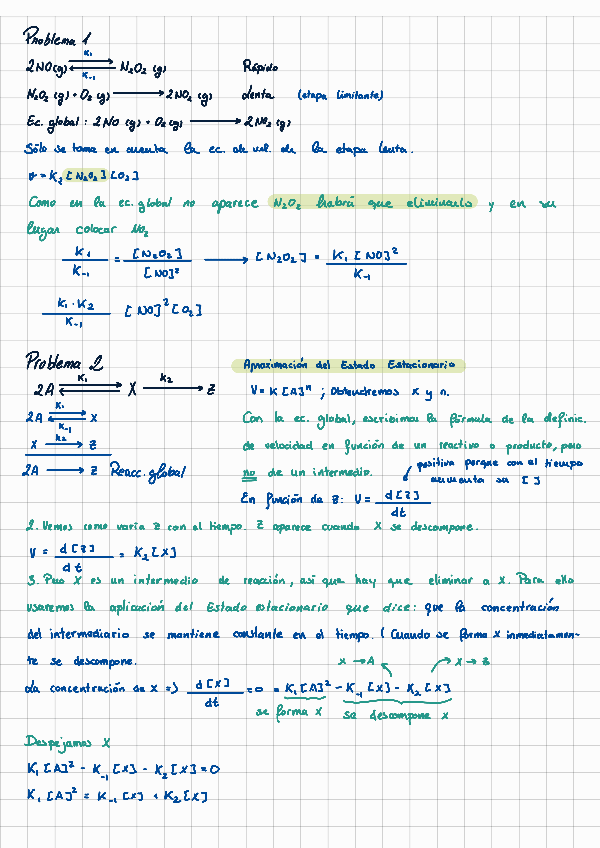 Problema 1
2NO(g) ⇌ N₂O₂ (g) K₁ K₋₁ Rápido
N₂O₂ (g) + O₂ (g) ⟶ 2NO₂ (g) Lenta (etapa limitante)
Ec. global: 2NO (g) + O₂ (g) ⟶ 2NO₂ (g)
Sólo se toma en cuenta la ec. de vel. de la etapa lenta.
v = K₂ [N₂O₂] [O₂]
Como en la ec. global no aparece N₂O₂ habrá que eliminarlo y en su
lugar colocar NO₂
K₁ / K₋₁ = [N₂O₂] / [NO]² ⟶ [N₂O₂] = K₁ [NO]² / K₋₁
K₁ · K₂ / K₋₁ [NO]² [O₂]
Problema 2 Aproximación del Estado Estacionario
2A ⇌ X ⟶ Z K₁ k₂ V = K [A]ⁿ ; Obtendremos K y n.
2A ⇌ X K₁ K₋₁
X ⟶ Z k₂
2A ⟶ Z Reacc. global
Con la ec. global, escribimos la fórmula de la definic.
de velocidad en función de un reactivo o producto, pero
no de un intermedio.
positiva porque con el tiempo
aumenta su [ ]
En función de Z: V = d[Z] / dt
2. Vemos como varía Z con el tiempo. Z aparece cuando X se descompone.
V = d[Z] / dt = K₂ [X]
3. Pero X es un intermedio de reacción, así que hay que eliminar a X. Para ello
usaremos la aplicación del Estado estacionario que dice: que la concentración
del intermediario se mantiene constante en el tiempo. (Cuando se forma X inmediatamen-
te se descompone.
X → A X → Z
La concentración de X => d[X] / dt = 0 = K₁[A]² - K₋₁ [X] - K₂ [X]
se forma X se descompone X
Despejamos X
K₁ [A]² - K₋₁ [X] - K₂ [X] = 0
K₁ [A]² = K₋₁ [X] + K₂ [X]